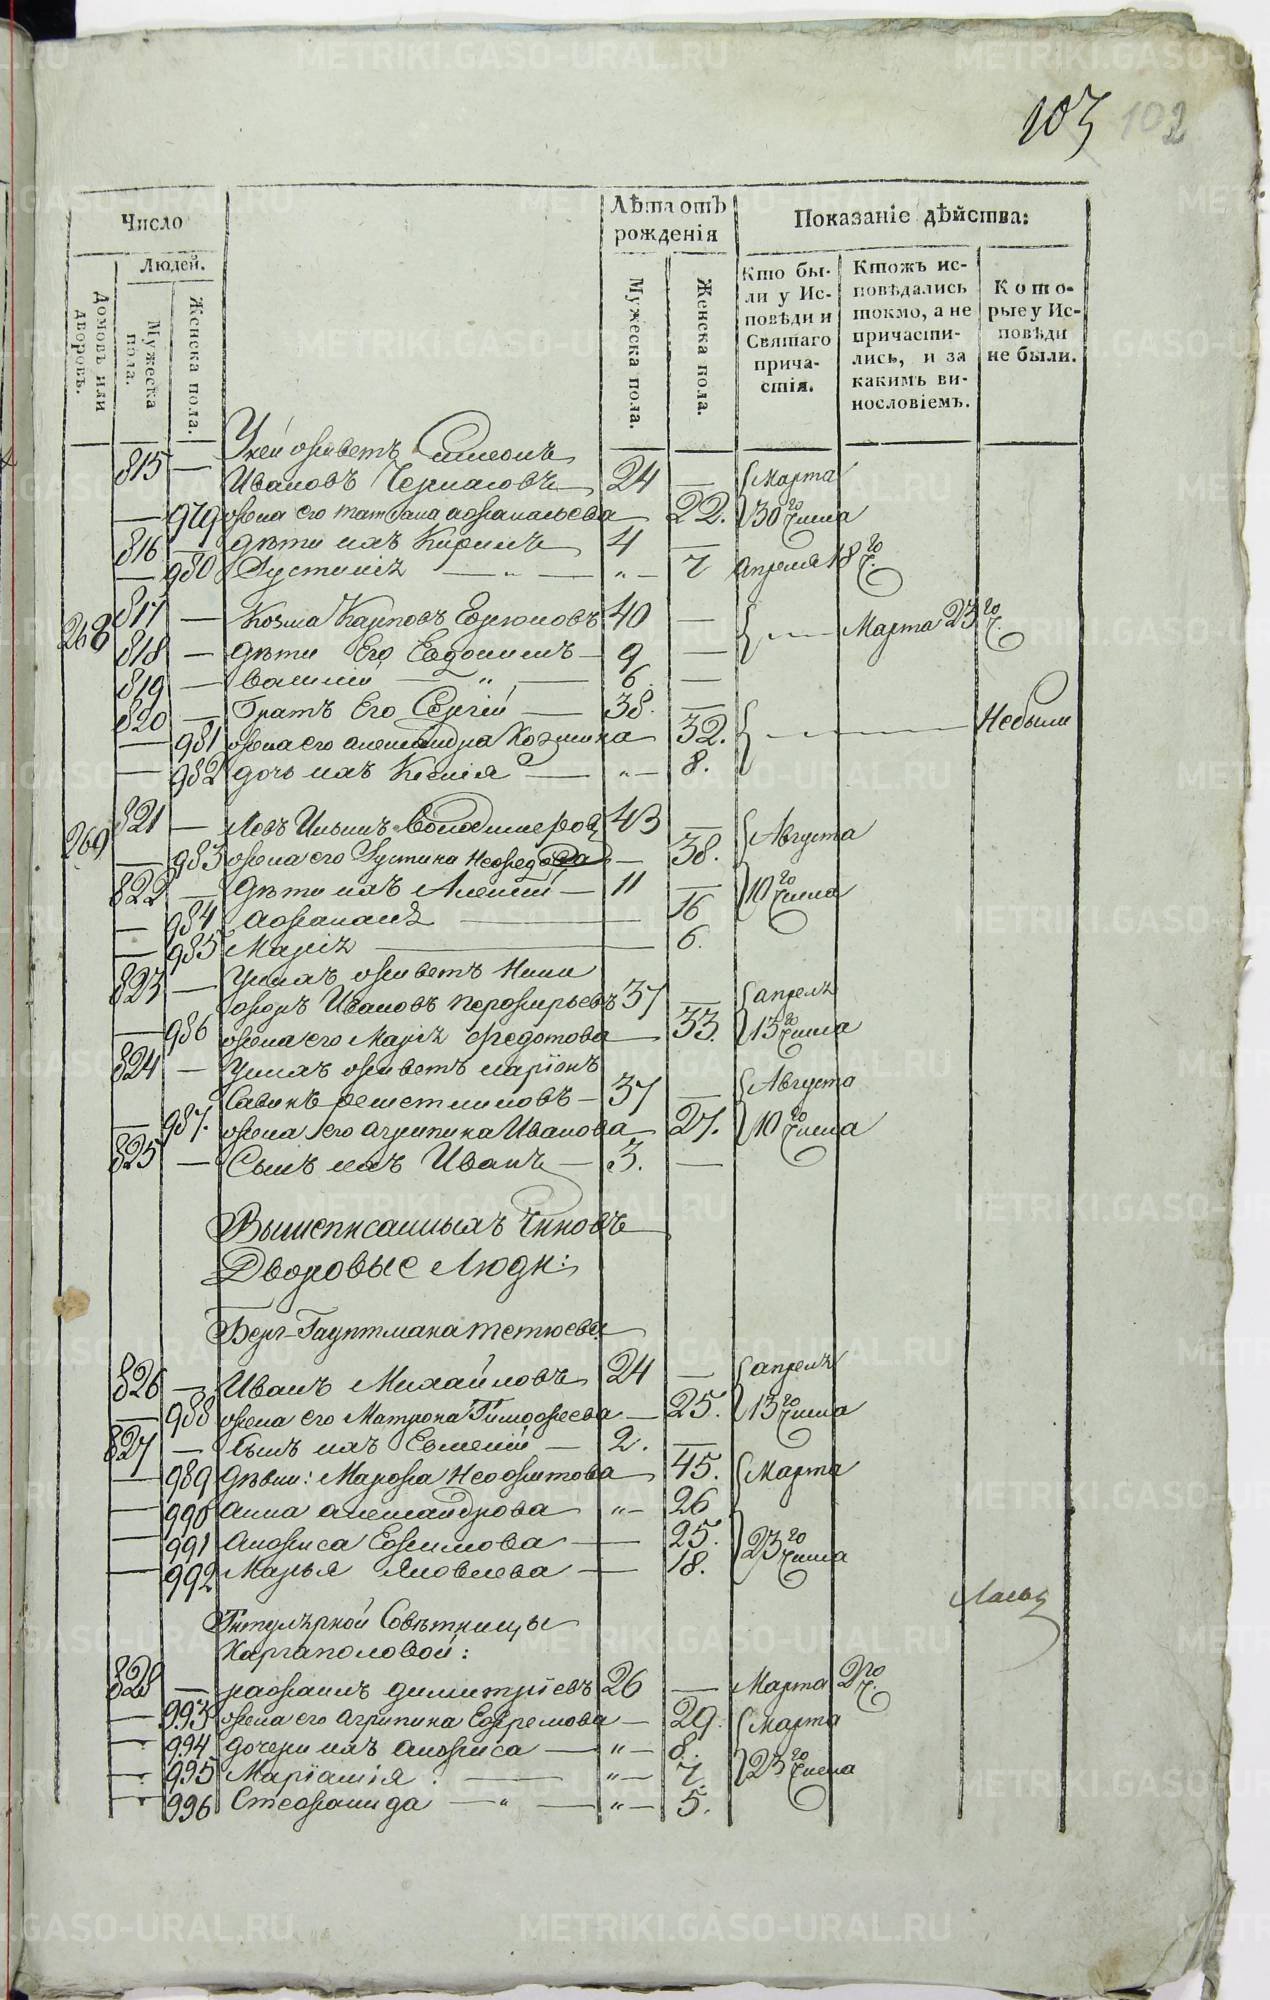 103 102
Число
Лѣта отъ рожденія
Показаніе дѣйства:
Людей.
Домовъ или дворовъ.
Мужеска пола.
Женска пола.
Мужеска пола.
Женска пола.
Кто бы-
ли у Ис-
повѣди и
Святаго
прича-
стія.
Ктожъ ис-
повѣдались
токмо, а не
причасти-
лись, и за
какимъ ви-
нословіемъ.
Кото-
рые у Ис-
повѣди
не были.
Унеи живетъ Симеонъ
815 — Ивановъ 24 — Марта
— 979 жена его татіана афанасьева 22. 30го числа
816 — дѣти ихъ Кирилъ 4 —
— 980 Густинія — „ — „ — 7 апреля 18го ч.
268 817 — Козма Карповъ 40 — Марта 23го ч.
818 — дѣти Его Евдокимъ — 9 —
819 — Василий — „ — 6 —
820 — Братъ Его Сергій — 38. — Небыли
— 981 жена его александра Козмина — 32.
— 982 дочь ихъ Ксенія — „ — 8.
269 821 — Левъ Ильинъ Володимеров 43 — Августа
— 983 жена его Густина Нефедова — 38.
822 — Дѣти ихъ Алексей — 11 — 10го числа
— 984 Афанасія — 16
— 985 Марія — 6.
823 — Унихъ живетъ Ники
форъ Ивановъ 37 — апреля
— 986 жена его Марія федотова — 33. 13го числа
824 — Унихъ живетъ ларіонъ
Савинъ 37 — Августа
— 987. жена его агрипина Иванова — 27. 10го числа
825 — Сынъ ихъ Иванъ — 3. —
Вышеписанныхъ Чиновъ
Дворовые Люди:
Берг-Гауптмана тетюева
826 — Иванъ Михайловъ 24 — апреля
— 988 жена его Матрона Тимофеева — 25. 13го числа
827 — Сынъ ихъ Евгений — 2. —
— 989 дѣвки: Марфа Неофитова — 45. Марта
— 990 анна александрова — „ — 26
— 991 анфиса Ефимова — 25. 23го числа
— 992 Марья Яковлева — 18.
Титулярной Совѣтницы
Каргаполовой:
828 — рафаилъ димитріевъ 26 — Марта 2го ч.
— 993 жена его агрипина Ефремова — 29. Марта
— 994 дочери ихъ анфиса — „ — 8.
— 995 Маріамія — „ — 7. 23го числа
— 996 Стефанида — „ — „ — 5.
METRIKI.GASO-URAL.RU